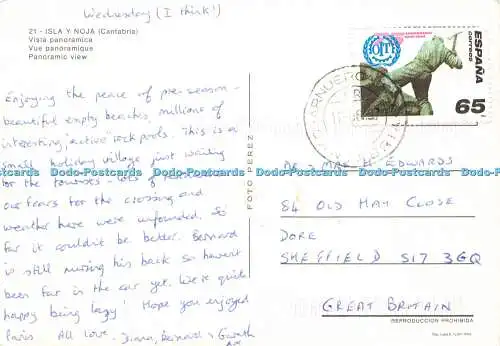 Wednesday (I think!)
21 - ISLA Y NOJA (Cantabria)
Vista panoramica
Vue panoramique
Panoramic view
Enjoying the peace of pre-season -
beautiful empty beaches, millions of
interesting, "active" rock pools. This is a
small holiday village just waiting
for the tourists - lots of
our fears for the crossing and
weather here were unfounded. So
far it couldn't be better. Bernard
is still nursing his back so haven't
been far in the car yet. We're quite
happy being lazy! Hope you enjoyed
Paris. All love, Diana, Bernard & Gareth
FOTO PEREZ
ESPAÑA
correos
OIT
65
ARNUERO
Dodo-Postcards Dodo-Postcards Dodo-Postcards Dodo-Postcards Dodo-Postcards
EDWARDS
84 OLD HAY CLOSE
DORE
SHEFFIELD S17 3GQ
GREAT BRITAIN
REPRODUCCION PROHIBIDA